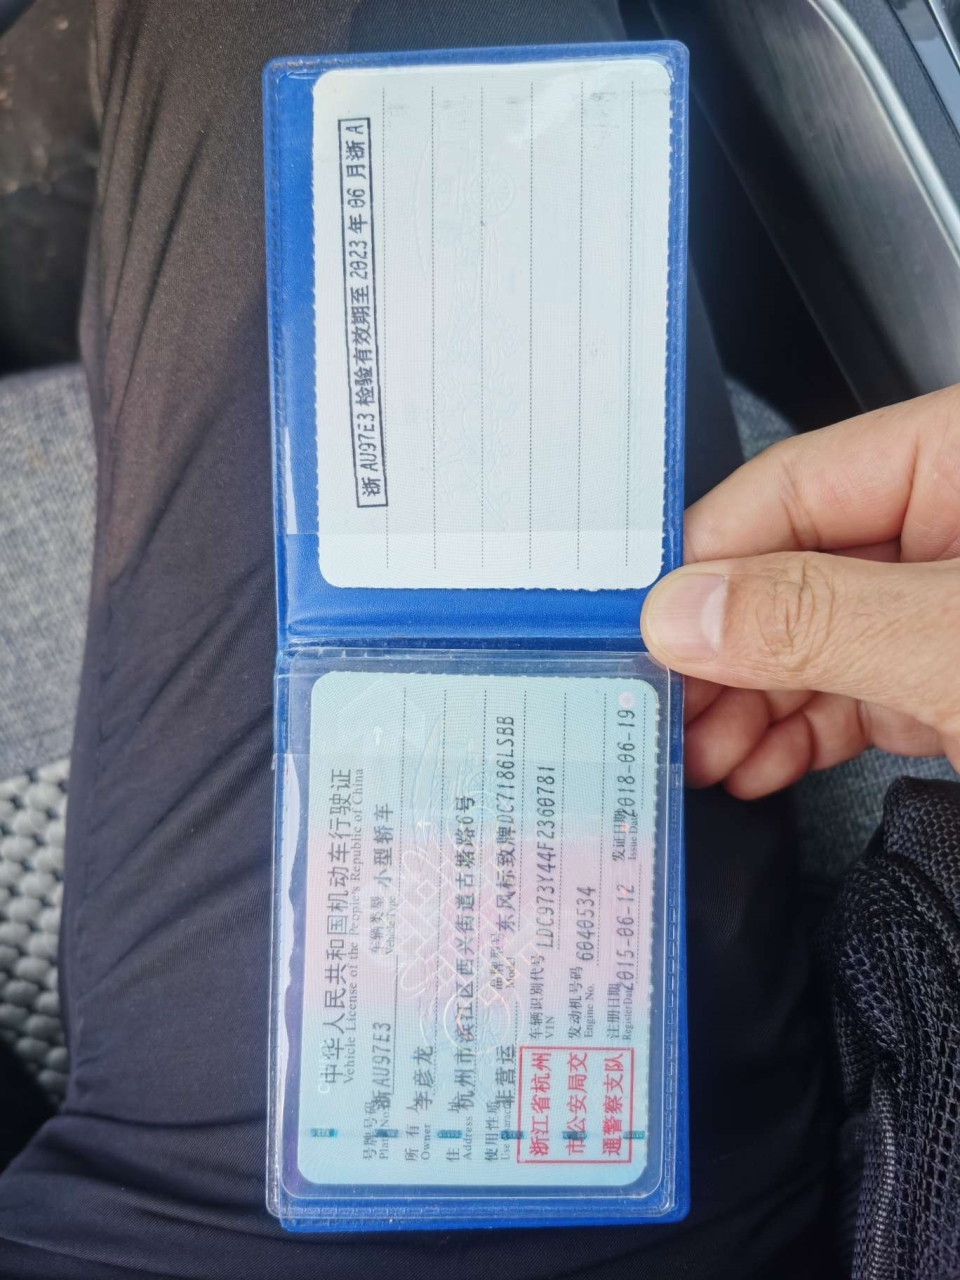 中华人民共和国机动车行驶证
Vehicle License of the People's Republic of China
号牌号码 浙AU97E3 车辆类型 小型轿车
Plate No. Vehicle Type
所有人 李彦龙
Owner
住址 杭州市滨江区西兴街道古塘路6号
Address
使用性质 非营运 品牌型号 东风标致牌DC7186LSBB
Use Character Model
浙江省杭州
市公安局交
通警察支队
车辆识别代号 LDC973Y44F2360781
VIN
发动机号码 6040534
Engine No.
注册日期 2015-06-12 发证日期 2018-06-19
Register Date Issue Date
浙AU97E3 检验有效期至 2023 年 06 月浙 A